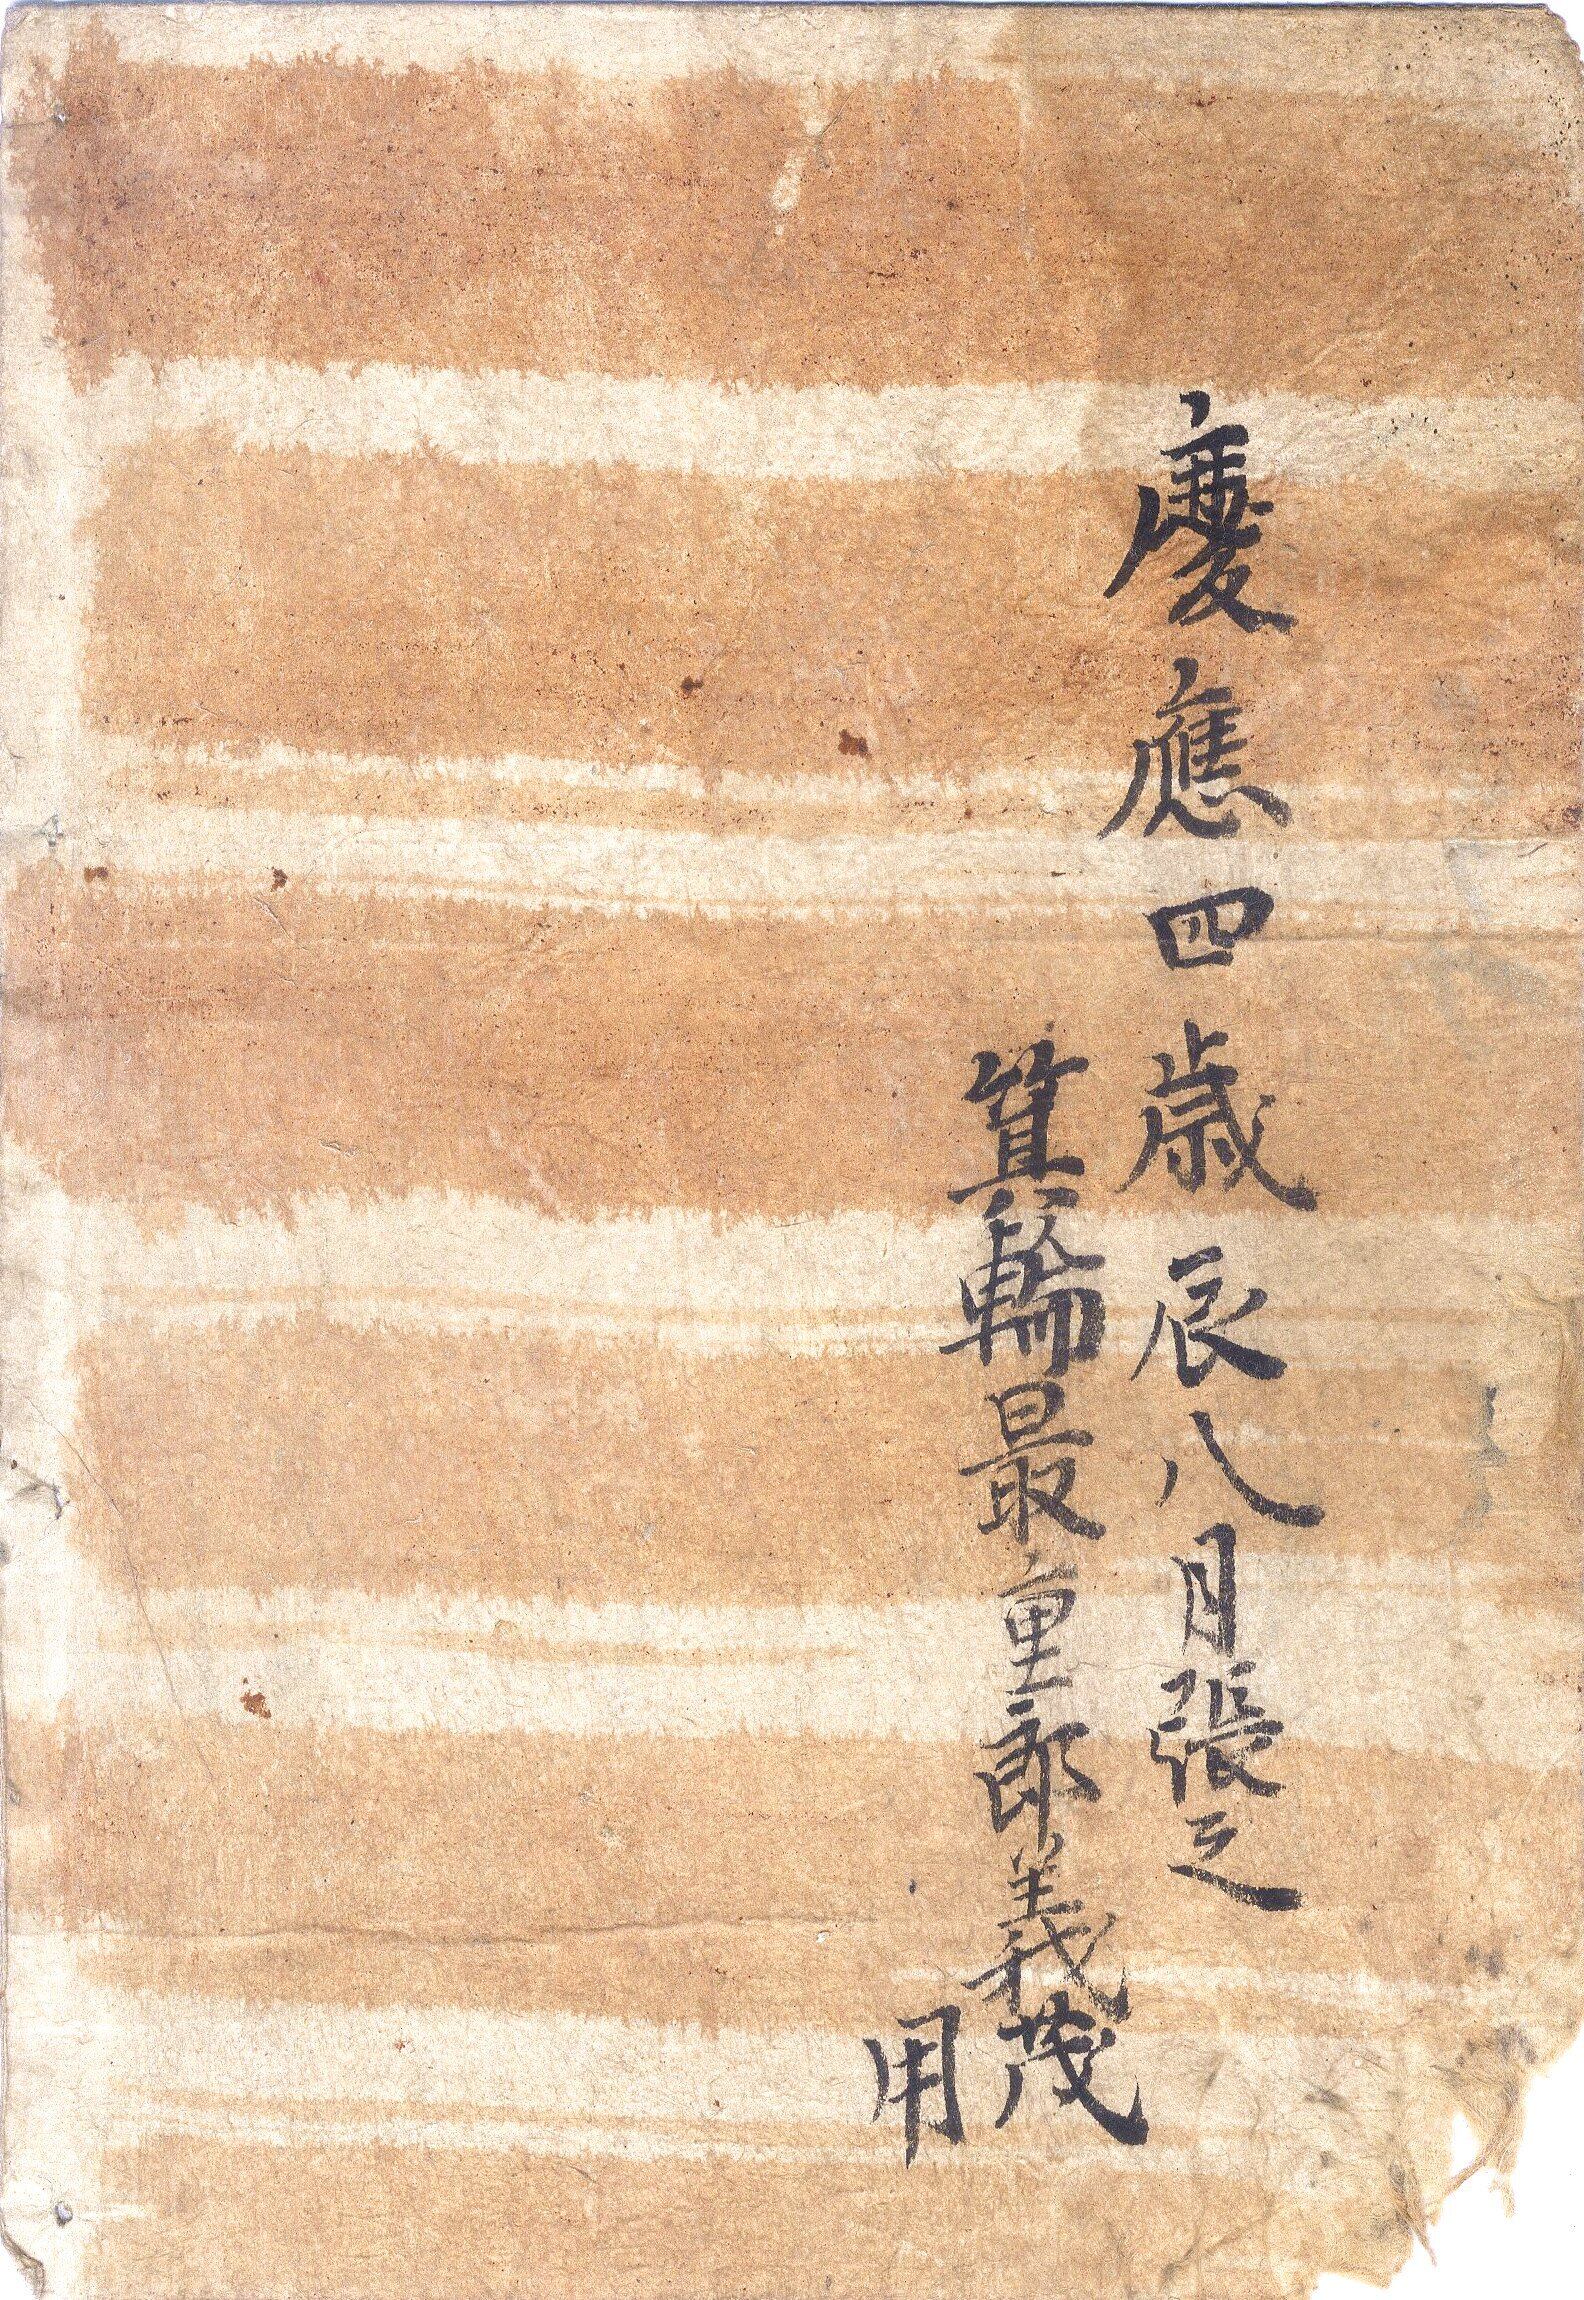 慶應四歳辰八月張之
箕輪最重郎義茂
用